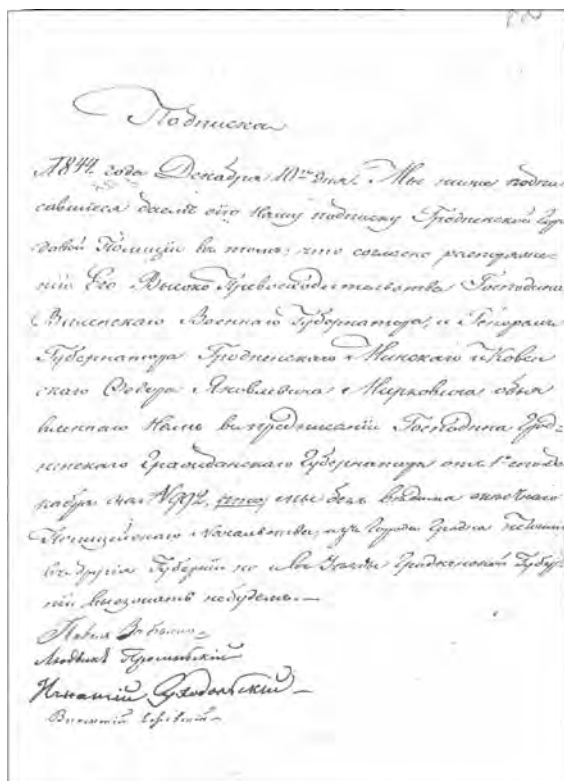 Подписка
1844 года Декабря 10го дня. Мы ниже подпи
савшиеся даемъ сію Нашу подписку Гродненской Гор
довой Полиціи въ томъ, что согласно распоряже
нію Его Высоко Превосходительства Господина
Виленскаго Военнаго Губернатора, и Генералъ
Губернатора Гродненскаго Минскаго и Ковен
скаго Федора Яковлевича Мирковича объя
вленнаго Намъ въ предписаніи Господина Грод=
ненскаго Гражданскаго Губернатора отъ 1го
кабря за N992, что мы безъ вѣдома
Полицейскаго Начальства, изъ города Гродна
въ другія Губерніи но и въ Уѣзды Гродненской Губер
ніи выезжать небудемъ.—
Людвикъ
Игнатій